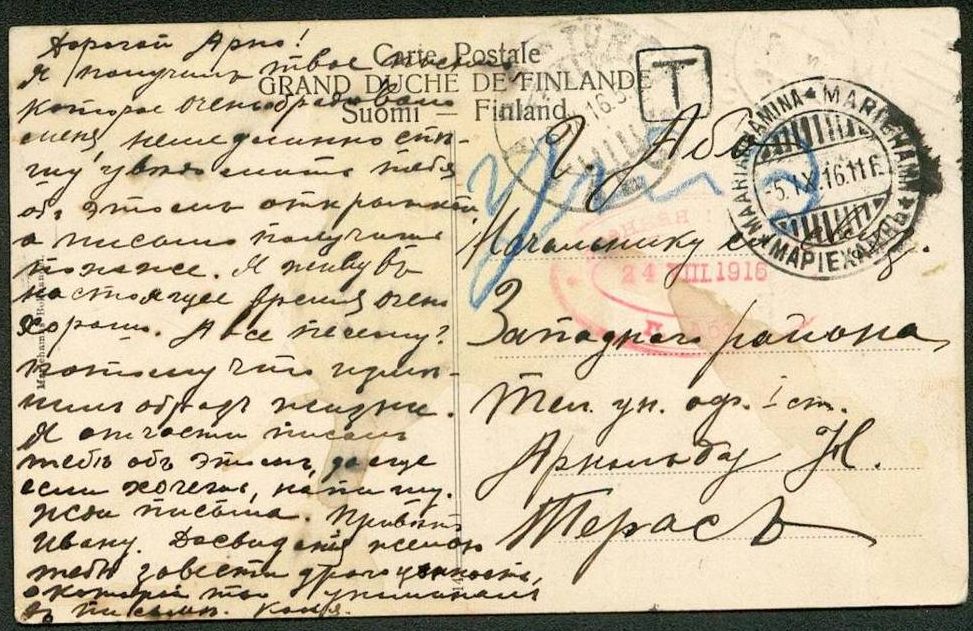 Carte Postale
GRAND DUCHÉ DE FINLANDE
Suomi — Finland
T
Дорогой Арно!
Я получилъ твое письмо
которое очень обрадовало
меня немедленно
шу увѣдомить тебя
объ этомъ открыткой,
а письмо получишь
попозже. Я живу въ
настоящее время очень
хорошо. А все почему?
потому что
образъ жизни.
Я отчасти писалъ
тебѣ объ этомъ, да еще
если хочешь, напишу.
Жди письма. Привѣтъ
Ивану. Досвиданія желаю
тебѣ завести драгоцѣнность,
о которой ты упоминалъ
въ письмѣ. Коля.
г. Або
Начальнику
Западного района
Тел. ун. оф. I ст.
Арнольду Н.
Терасъ
MAARIANHAMINA ★ MARIEHAMN ★ МАРІЕХАМНЪ ★
5.IX.16.11 F.
24 VIII 1916
TURKU